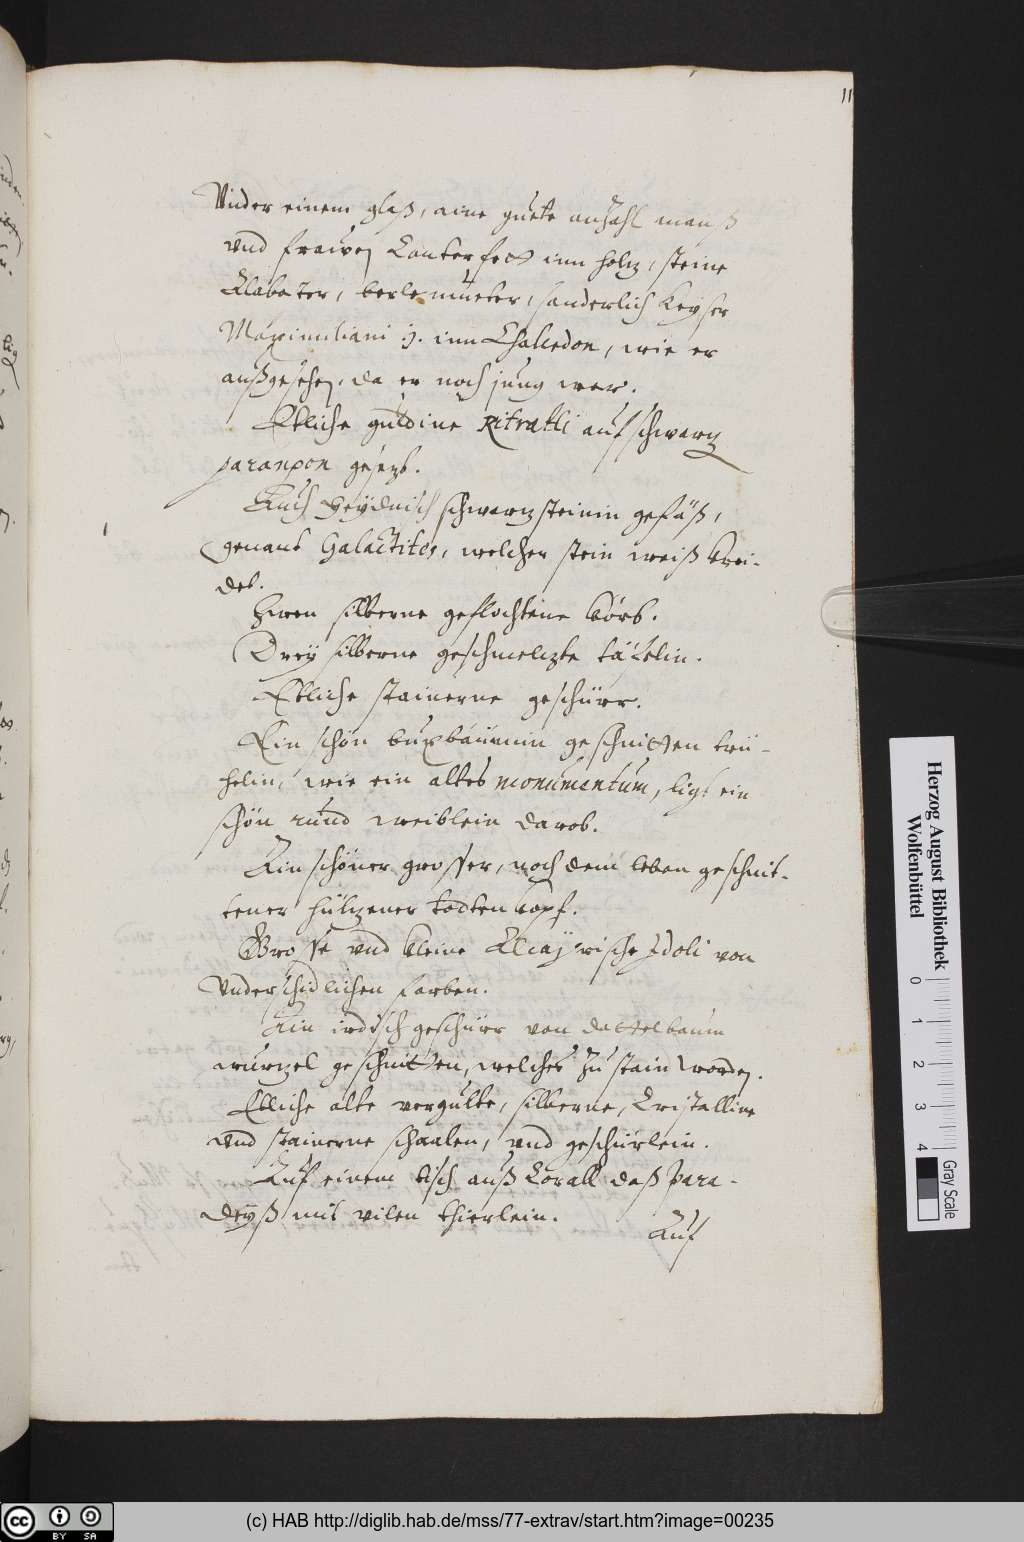 11
Vnder einem glaß, aine guete anzahl manß
vnd frawen Conterfect inn holz, steine
Alabaster, berlemueter, sonderlich Keyser
Maximiliani j. inn Chalcedon, wie er
außgesehen, da er noch jung war.
Etliche guldine Ritratti auf schwarz
paranpon gesezt.
Auch Heydnisch schwarz steinin gefäß,
genant Galactites, welcher stein weiß krei-
det.
Zwen silberne geflochtene körb.
Drey silberne geschmelzte täfelin.
Etliche stainerne geschürr.
Ein schön buxbäumin geschnitten trü-
helin, wie ein altes monumentum, ligt ein
schön rund weiblein darob.
Ein schöner grosser, nach dem leben geschnit-
tener hülzener todten kopf.
Grosse vnd kleine Alcayrische Idoli von
vnderschidlichen farben.
Ein irdisch geschürr von dattelbaum
wurzel geschnitten, welches zu stain worden.
Etliche alte vergulte, silberne, Cristalline
vnd stainerne schaalen, vnd geschürlein.
Auf einem tisch auß Corall daß Para-
deyß mit vilen thierlein.
Auf
Herzog August Bibliothek
Wolfenbüttel
0 1 2 3 4
Gray Scale
(c) HAB http://diglib.hab.de/mss/77-extrav/start.htm?image=00235
cc BY SA